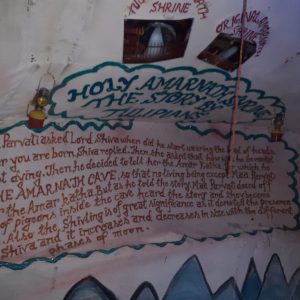 SHRINE
ORIGINAL
SHRINE
HOLY AMARNATH SHRINE
THE STORY BY
TULIPIANS
Parvati asked Lord Shiva when did he start wearing the bead of heads
you are born. Shiva replied. Then she asked that
dying. Then he decided to tell her the Amar Katha for which he
THE AMARNATH CAVE, so that no living being except Maa Parvati
the Amar katha. But as he told the story Maa Parvati dozed off
of pigeons inside the cave heard the story and they become
Also the Shivling is of great significance as it denotes the presence
Shiva and it increases and decreases in size with the different
phases of moon.